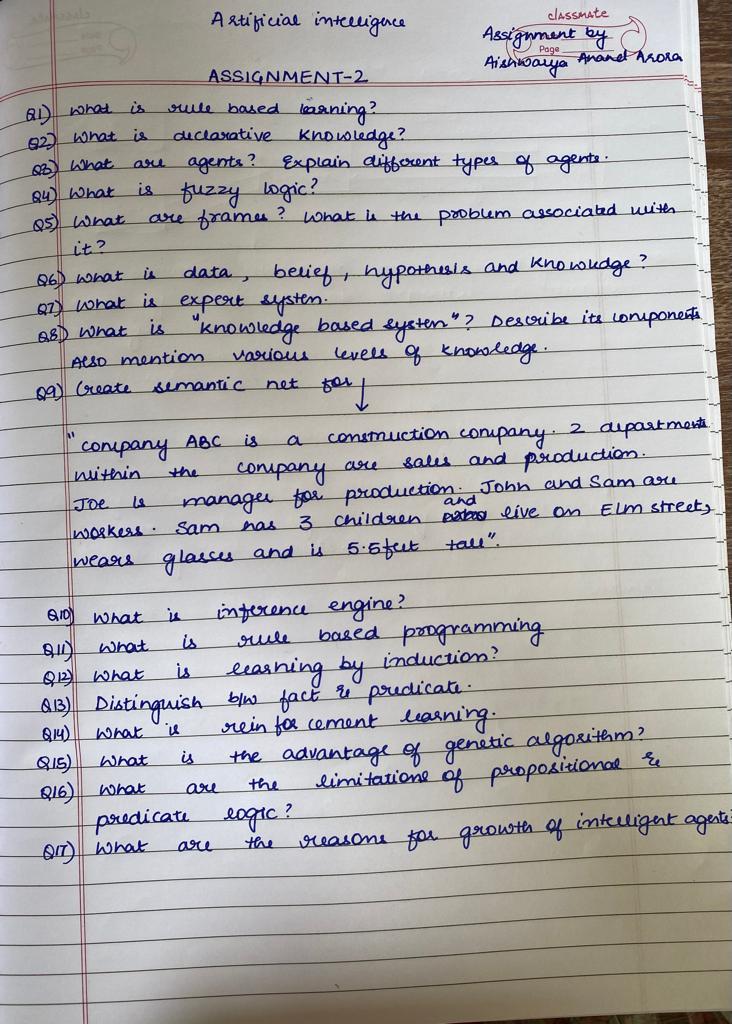 Artificial intelligence
classmate
Assignment by
Page
Aishwarya Anand Arora
ASSIGNMENT-2
Q1) What is rule based learning?
Q2) What is declarative knowledge?
Q3) What are agents? Explain different types of agents.
Q4) What is fuzzy logic?
Q5) What are frames? What is the problem associated with
it?
Q6) What is data, belief, hypothesis and knowledge?
Q7) What is expert system.
Q8) What is "knowledge based system"? Describe its components
Also mention various levels of knowledge.
Q9) Create semantic net for ↓
"company ABC is a construction company. 2 departments
within the company are sales and production.
Joe is manager for production. John and Sam are
workers. Sam has 3 children and live on Elm street,
wears glasses and is 5.5 feet tall".
Q10) What is inference engine?
Q11) What is rule based programming
Q12) What is learning by induction?
Q13) Distinguish b/w fact & predicate.
Q14) What is reinforcement learning.
Q15) What is the advantage of genetic algorithm?
Q16) What are the limitations of propositional &
predicate logic?
Q17) What are the reasons for growth of intelligent agents?